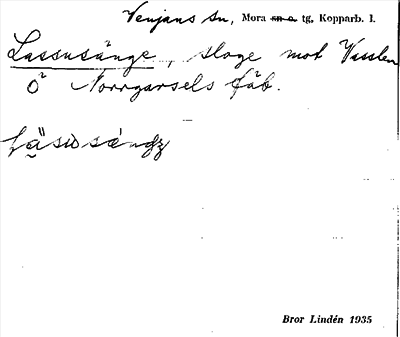 Venjans sn, Mora sn o. tg, Kopparb. l.
Lassusänge, sloge mot Vasslen
O Norrgarsels fäb.
Bror Lindén 1935